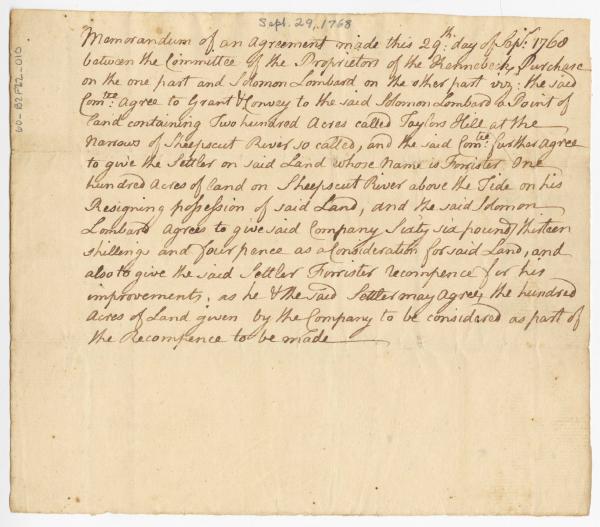 Sept. 29, 1768
60-B2F22-010
Memorandum of an Agreement made this 29th: day of Sept: 1768
between the Committee of the Proprietors of the Kennebeck Purchase
on the one part and Solomon Lombard on the other part viz: the said
Comtee: Agree to Grant & Convey to the said Solomon Lombard a Point of
land containing Two hundred Acres called Taylors Hill at the
Narows of Sheepscut River so called, and the said Comtee: further Agree
to give the Settler on said Land whose Name is Forrister One
hundred Acres of land on Sheepscut River above the Tide on his
Resigning possession of said Land, and the said Solomon
Lombard Agrees to give said Company Sixty six pounds thirteen
shillings and four pence as a Consideration for said Land, and
also to give the said Settler Forrister recompence for his
improvements, as he & the said Settler may Agree, the hundred
Acres of Land given by the Company to be considered as part of
the Recompence to be made